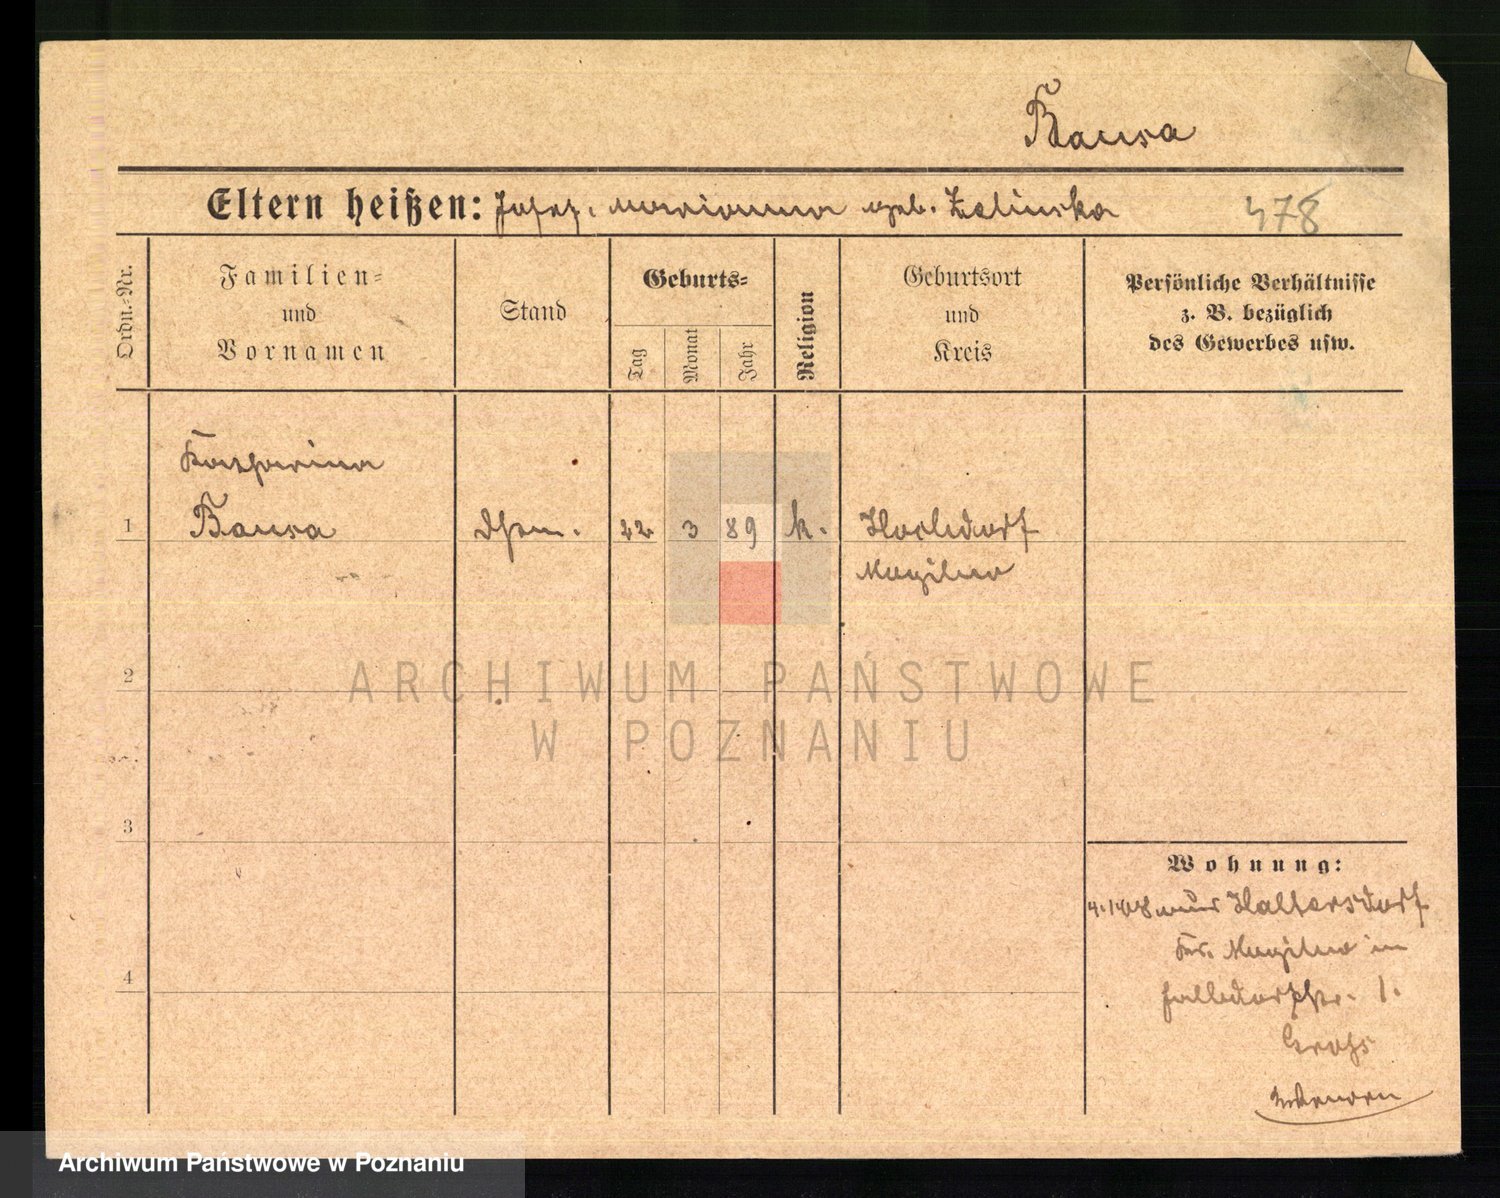 Bausa
Eltern heißen: Josef, Marianna geb. Zelinska 478
Ordn.-Nr.
Familien-
und
Vornamen
Stand
Geburts-
Tag
Monat
Jahr
Religion
Geburtsort
und
Kreis
Persönliche Verhältnisse
z. B. bezüglich
des Gewerbes usw.
Katharina
1 Bausa 22 3 89 k. Hochdorf
Mogilno
2
3
4
Wohnung:
Kr. Mogilno in
1.
ARCHIWUM PAŃSTWOWE
W POZNANIU
Archiwum Państwowe w Poznaniu